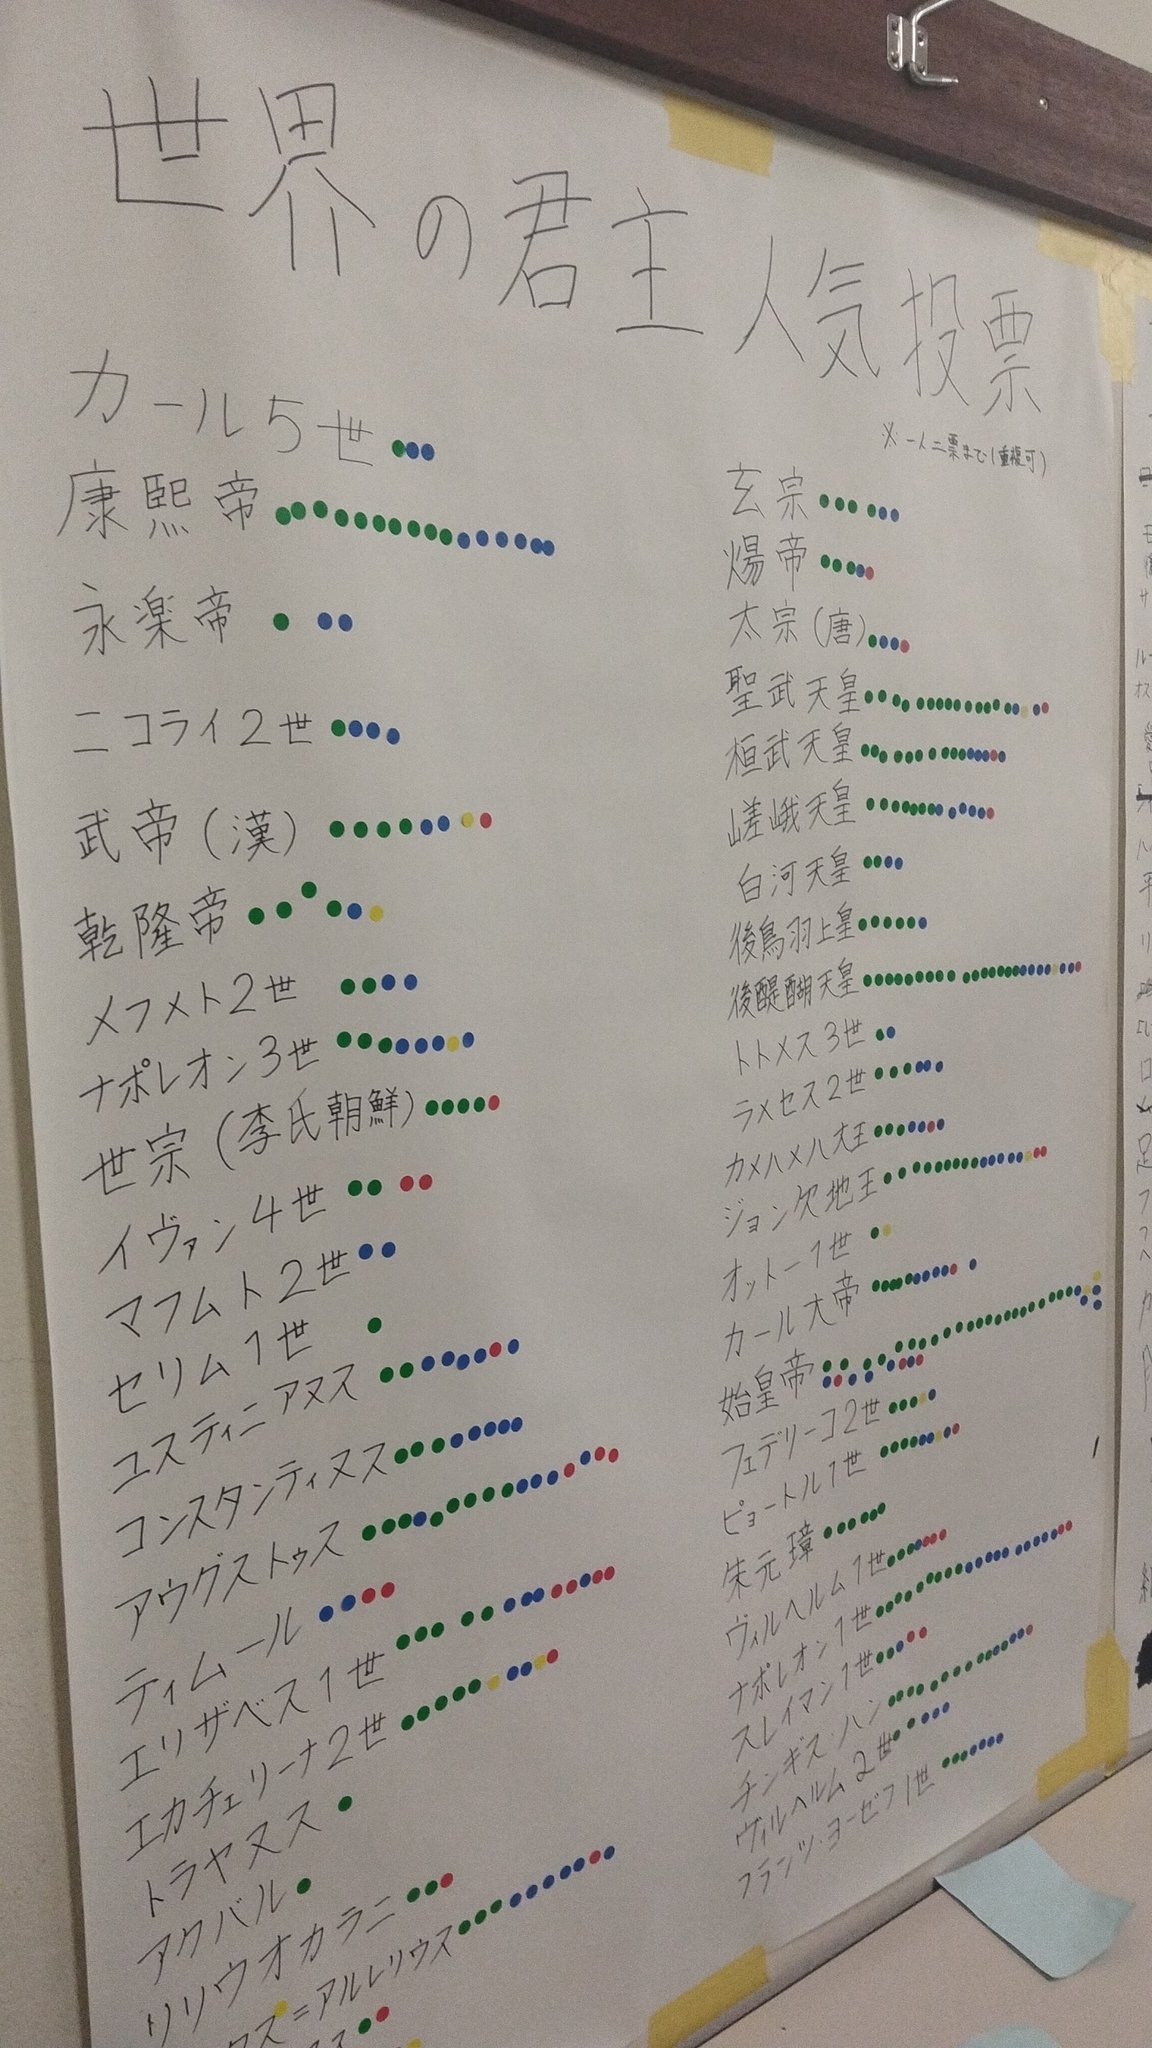 世界の君主人気投票
※一人二票まで(重複可)
カール5世
康熙帝
永楽帝
ニコライ2世
武帝(漢)
乾隆帝
メフメト2世
ナポレオン3世
世宗(李氏朝鮮)
イヴァン4世
マフムト2世
セリム1世
ユスティニアヌス
コンスタンティヌス
アウグストゥス
ティムール
エリザベス1世
エカチェリーナ2世
トラヤヌス
アクバル
リリウオカラニ
クス=アルレリウス
玄宗
煬帝
太宗(唐)
聖武天皇
桓武天皇
嵯峨天皇
白河天皇
後鳥羽上皇
後醍醐天皇
トトメス3世
ラメセス2世
カメハメハ大王
ジョン欠地王
オットー1世
カール大帝
始皇帝
フェデリーコ2世
ピョートル1世
朱元璋
ヴィルヘルム1世
ナポレオン1世
スレイマン1世
チンギス・ハン
ヴィルヘルム2世
フランツ・ヨーゼフ1世